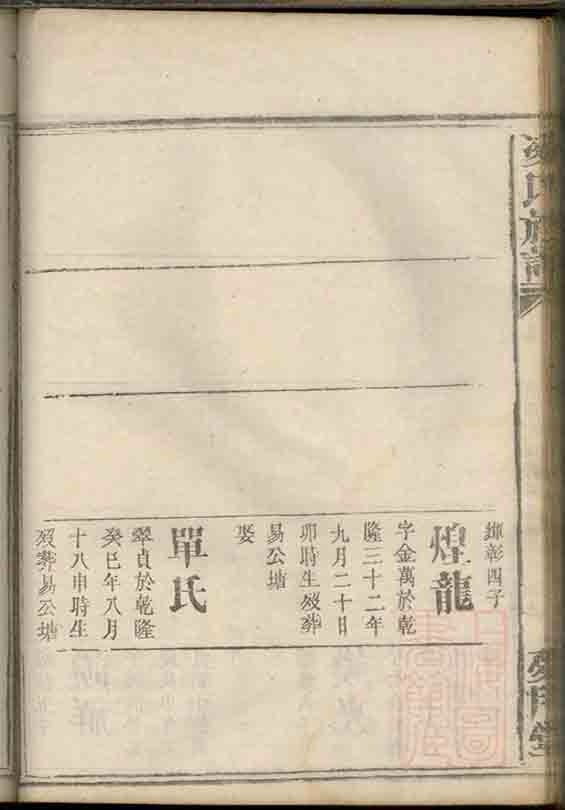 氏族譜
輝彰四子
煌龍
字金萬於乾
隆三十二年
九月二十日
卯時生歿葬
易公塘
娶
單氏
翠貞於乾隆
癸巳年八月
十八申時生
歿葬易公塘